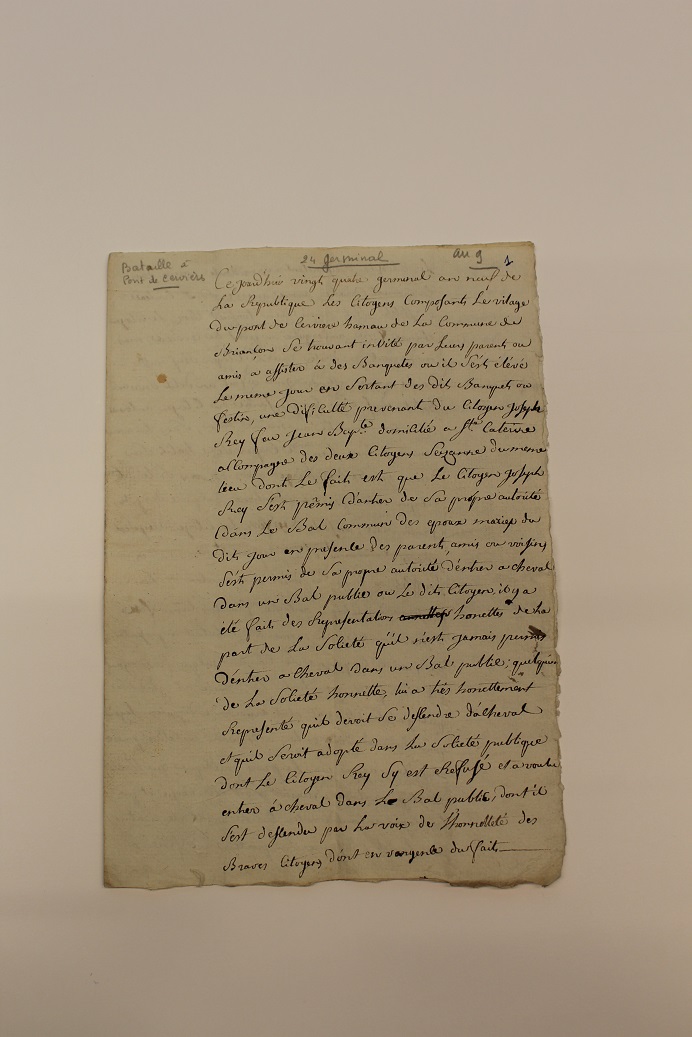 Bataille à
Pont de Cervières
24 Germinal
an 9
1
Ce jourd'hui vingt quatre germinal an neuf de
La Republique Les Citoyens Composants Le vilage
Du pont de Cerviere hamau de La Commune de
Briançon Se trouvant invité par Leurs parent ou
amis a assister à des Banquetes ou il S'est élévé
Le meme jour en Sortant des dits Banquets ou
festin, une dificulté provenant du Citoyen Joseph
Rey feu Jean Bapte domicilié a Ste Caterine
accompagné des deux Citoyens Seizanne du meme
Lieu dont Le fait est que Le Citoyen Joseph
Rey S'est permis d'antrer de Sa propre autorité
dans Le Bal Commun des epoux mariex du
dit jour en presente des parents amis ou voisins
S'est permis de Sa propre autorité d'entrer a cheval
dans un Bal public ou Le dits Citoyen il y a
été faits des Representation honettes de La
part de La Solieté qu'il n'est jamais permis
d'entrer a Cheval dans un Bal public; quelqu'un
de La Solieté honnette, lui a très honettement
Representé quil devoit Se desfendre d'acheval
et quil Seroit adopté dans La Solieté publique
dont Le Citoyen Rey Sy est Refusé et a voulu
entrer à cheval dans Le Bal public, dont il
S'est desfendu par La voix de L'honnetteté des
Braves Citoyens dont en vangence du fait